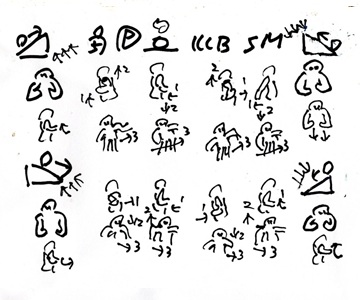 P KCB SM
2 2
1 1 1
2
3 3 3 3
1 1 1 1
2 2 2
3 3 3 3